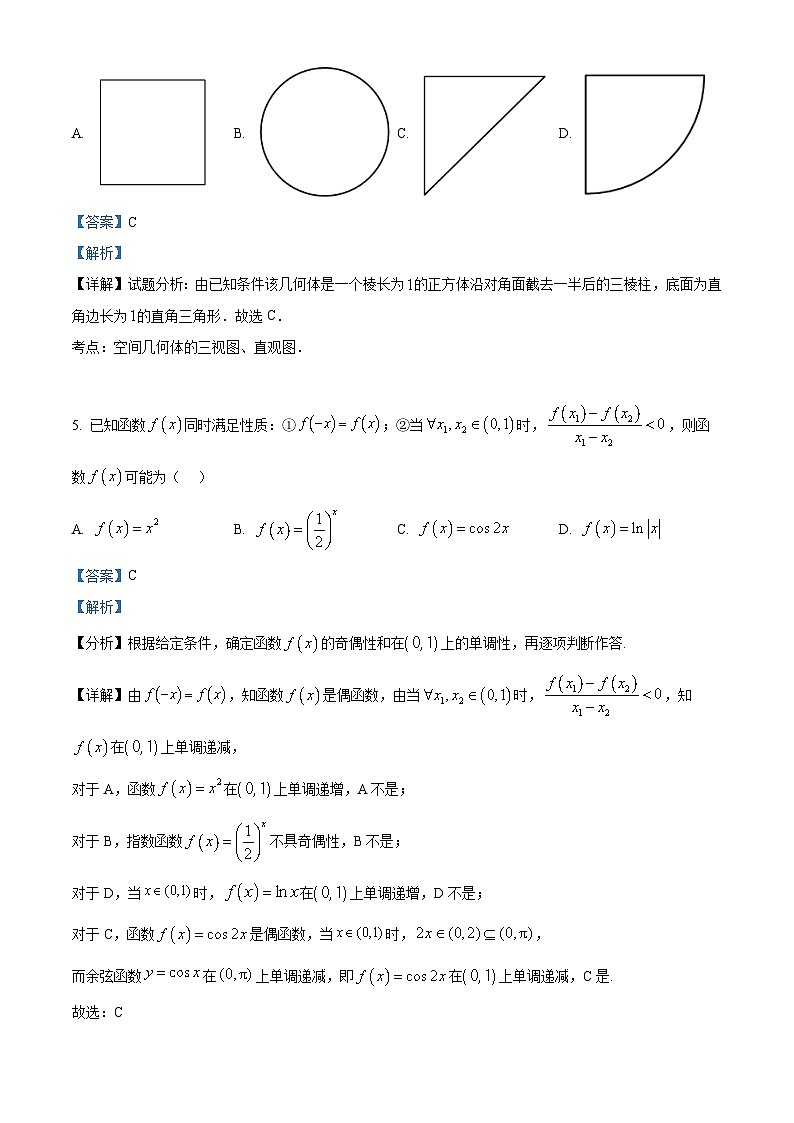 A. B. C. D.
【答案】C
【解析】
【详解】试题分析：由已知条件该几何体是一个棱长为1的正方体沿对角面截去一半后的三棱柱，底面为直
角边长为1的直角三角形．故选 C．
考点：空间几何体的三视图、直观图．
5. 已知函数 f(x) 同时满足性质：① f(−x) = f(x)；②当 ∀x₁, x₂ ∈ (0,1) 时，(f(x₁) − f(x₂))/(x₁ − x₂) < 0，则函
数 f(x) 可能为（ ）
A. f(x) = x² B. f(x) = (1/2)ˣ C. f(x) = cos 2x D. f(x) = ln |x|
【答案】C
【解析】
【分析】根据给定条件，确定函数 f(x) 的奇偶性和在(0,1)上的单调性，再逐项判断作答.
【详解】由 f(−x) = f(x)，知函数 f(x) 是偶函数，由当 ∀x₁, x₂ ∈ (0,1) 时，(f(x₁) − f(x₂))/(x₁ − x₂) < 0，知
f(x) 在(0,1)上单调递减，
对于 A，函数 f(x) = x² 在(0,1)上单调递增，A 不是；
对于 B，指数函数 f(x) = (1/2)ˣ 不具奇偶性，B 不是；
对于 D，当 x ∈ (0,1) 时，f(x) = ln x 在(0,1)上单调递增，D 不是；
对于 C，函数 f(x) = cos 2x 是偶函数，当 x ∈ (0,1) 时，2x ∈ (0,2) ⊆ (0,π)，
而余弦函数 y = cos x 在 (0,π) 上单调递减，即 f(x) = cos 2x 在(0,1)上单调递减，C 是.
故选：C